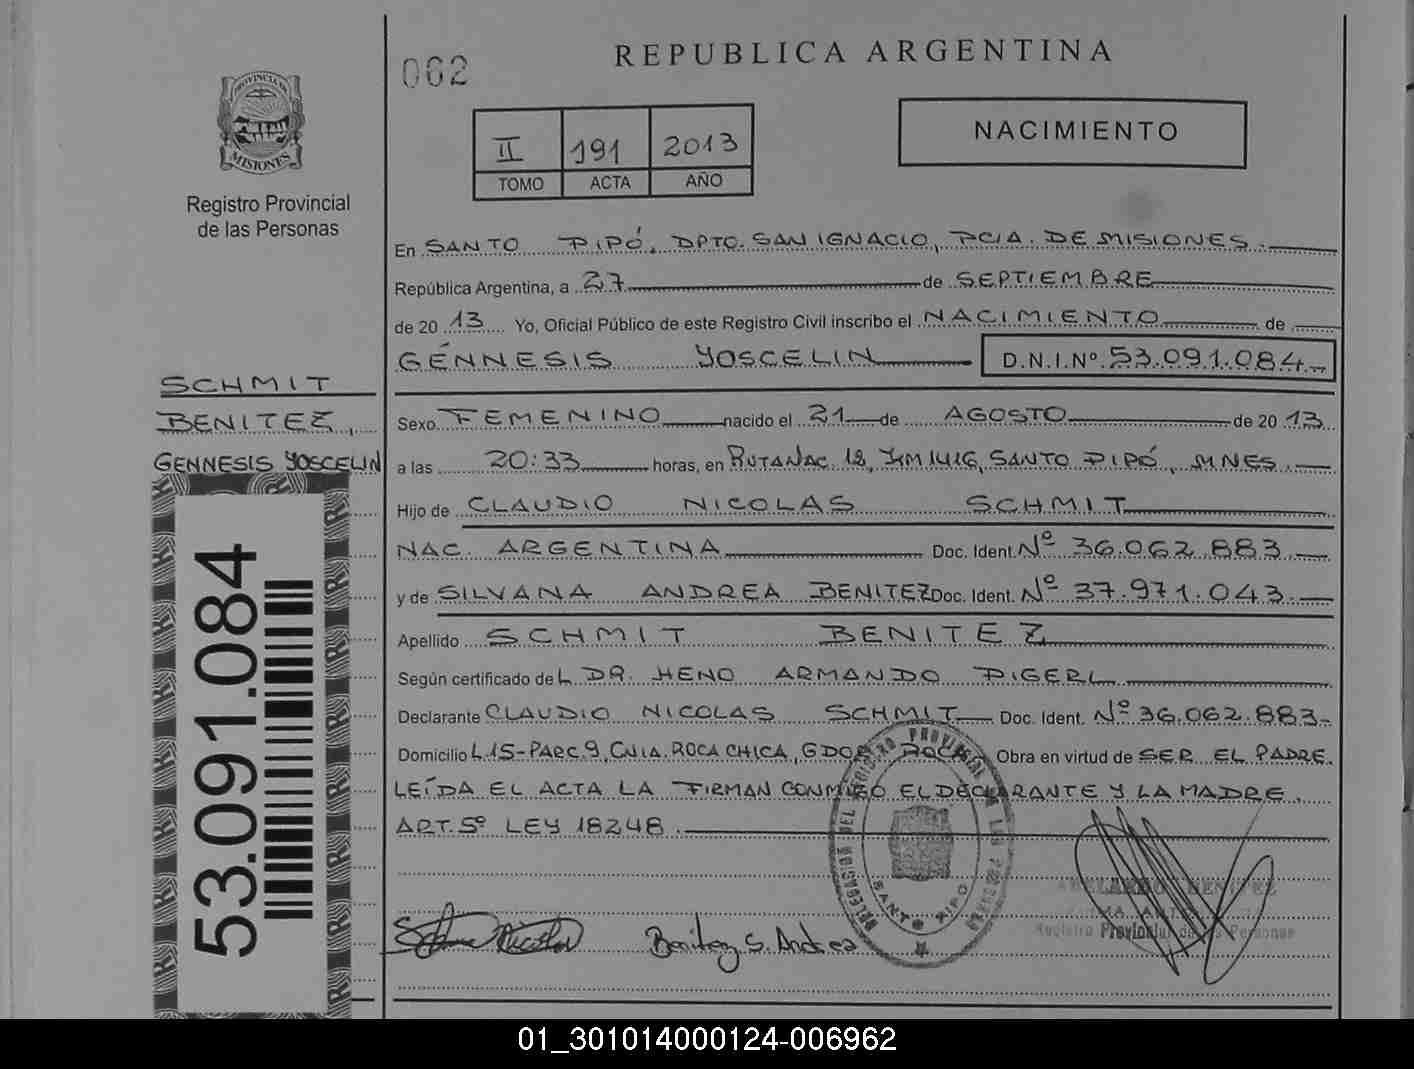 062
REPUBLICA ARGENTINA
PROVINCIA DE
MISIONES
Registro Provincial
de las Personas
II 191 2013
TOMO ACTA AÑO
NACIMIENTO
En SANTO PIPÓ, DPTO. SAN IGNACIO, PCIA. DE MISIONES.
República Argentina, a 27 de SEPTIEMBRE
de 20 13 Yo, Oficial Público de este Registro Civil inscribo el NACIMIENTO de
GÉNNESIS YOSCELIN D.N.I.Nº 53.091.084
SCHMIT
BENITEZ,
GENNESIS YOSCELIN
53.091.084
Sexo FEMENINO nacido el 21 de AGOSTO de 20 13
a las 20:33 horas, en RUTA NAC. 12, KM 1416, SANTO PIPÓ, MNES.
Hijo de CLAUDIO NICOLAS SCHMIT
NAC. ARGENTINA Doc. Ident. Nº 36.062.883
y de SILVANA ANDREA BENITEZ Doc. Ident. Nº 37.971.043
Apellido SCHMIT BENITEZ
Según certificado de L DR. HENO ARMANDO PIGERL
Declarante CLAUDIO NICOLAS SCHMIT Doc. Ident. Nº 36.062.883
Domicilio L.15-PARC.9, CNIA. ROCA CHICA, GDOR. ROCA Obra en virtud de SER EL PADRE.
LEÍDA EL ACTA LA FIRMAN CONMIGO EL DECLARANTE Y LA MADRE.
ART. 5º LEY 18248.
DELEGACION DEL REGISTRO PROVINCIAL DE LAS PERSONAS
SANTO PIPO
ABELARDO BENITEZ
Registro Provincial de las Personas
Benitez S. Andrea
01_301014000124-006962